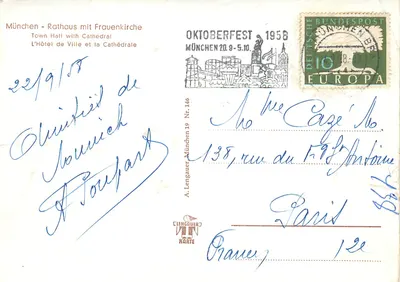 München - Rathaus mit Frauenkirche
Town Hall with Cathedral
L'Hôtel de Ville et la Cathédrale
22/9/58
Amitiés de
Munich
OKTOBERFEST 1958
MÜNCHEN 20.9.-5.10.
DEUTSCHE BUNDESPOST
10
EUROPA
MÜNCHEN
A. Lengauer, München 19 Nr. 146
LENGAUER
KARTE
Mme Cazé M.
138, rue du Fg St Antoine
Paris
France 12e